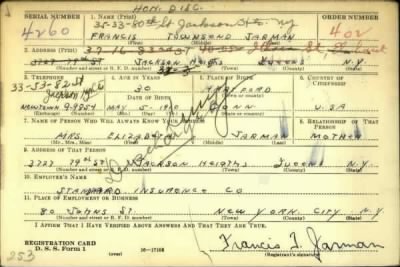 HON. DISC.
SERIAL NUMBER
1. NAME (Print)
ORDER NUMBER
35-33-80th St Jackson Hts. NY
4260
FRANCIS TOWNSEND JARMAN
402
(First) (Middle) (Last)
2. ADDRESS (Print)
37-16
3727 79th ST JACKSON HEIGHTS QUEENS N.Y.
(Number and street or R. F. D. number) (Town) (County) (State)
33-53-82 St
3. TELEPHONE
4. AGE IN YEARS
5. PLACE OF BIRTH
6. COUNTRY OF CITIZENSHIP
30
HARTFORD
DATE OF BIRTH
(Town or county)
NEWTOWN 9-9854
MAY-5-1910
CONN
U.S.A
(Exchange) (Number)
(Mo.) (Day) (Yr.)
(State or country)
7. NAME OF PERSON WHO WILL ALWAYS KNOW YOUR ADDRESS
8. RELATIONSHIP OF THAT PERSON
MRS. ELIZABETH JARMAN MOTHER
(Mr., Mrs., Miss) (First) (Middle) (Last)
9. ADDRESS OF THAT PERSON
3727 79th ST. JACKSON HEIGHTS QUEENS N.Y.
(Number and street or R. F. D. number) (Town) (County) (State)
10. EMPLOYER'S NAME
STANDARD INSURENCE CO
11. PLACE OF EMPLOYMENT OR BUSINESS
80 JOHNS ST. NEW YORK CITY N.Y.
(Number and street or R. F. D. number) (Town) (County) (State)
I AFFIRM THAT I HAVE VERIFIED ABOVE ANSWERS AND THAT THEY ARE TRUE.
253
REGISTRATION CARD
D. S. S. Form 1
(over)
16-17105
Francis T. Jarman
(Registrant's signature)